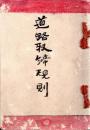 道路取締規則